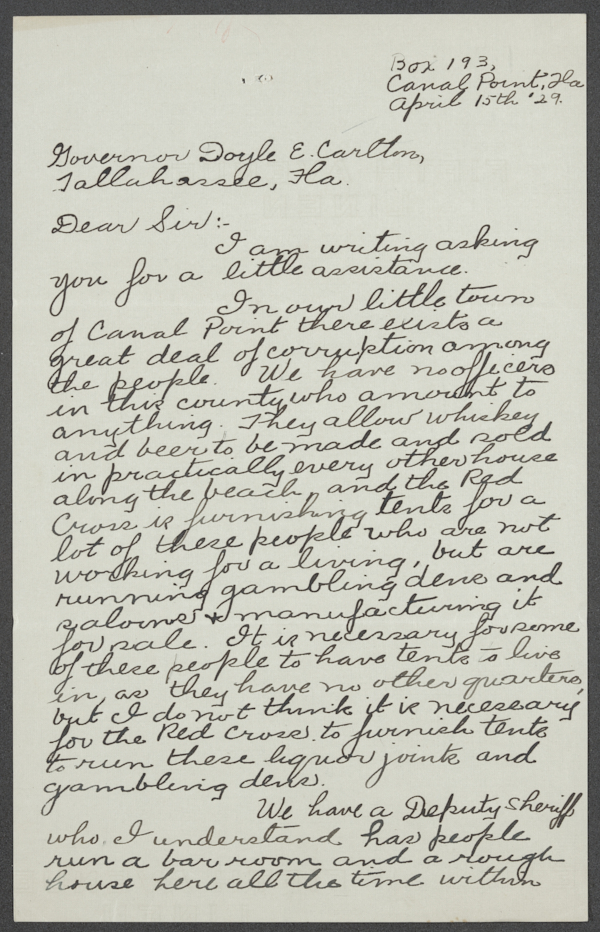 Box 193,
Canal Point, Fla
April 15th '29.
Governor Doyle E. Carlton,
Tallahassee, Fla.
Dear Sir:-
I am writing asking
you for a little assistance.
In our little town
of Canal Point there exists a
great deal of corruption among
the people. We have no officers
in this county who amount to
anything. They allow whiskey
and beer to be made and sold
in practically every other house
along the beach, and the Red
Cross is furnishing tents for a
lot of these people who are not
working for a living, but are
running gambling dens and
saloons & manufacturing it
for sale. It is necessary for some
of these people to have tents to live
in, as they have no other quarters,
but I do not think it is necessary
for the Red Cross to furnish tents
to run these liquor joints and
gambling dens.
We have a Deputy Sheriff
who I understand has people
run a bar room and a rough
house here all the time within